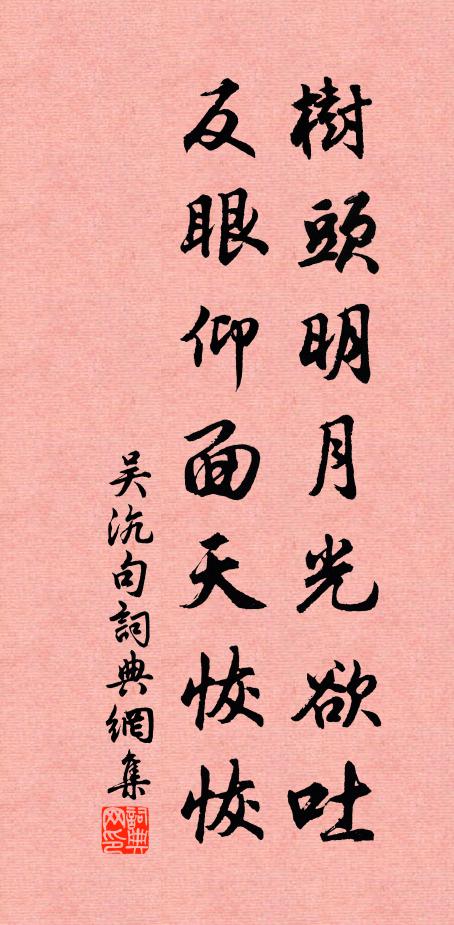 樹頭明月光欲吐
反眼仰面天恢恢
吴沆句詞典網集
詞典网印